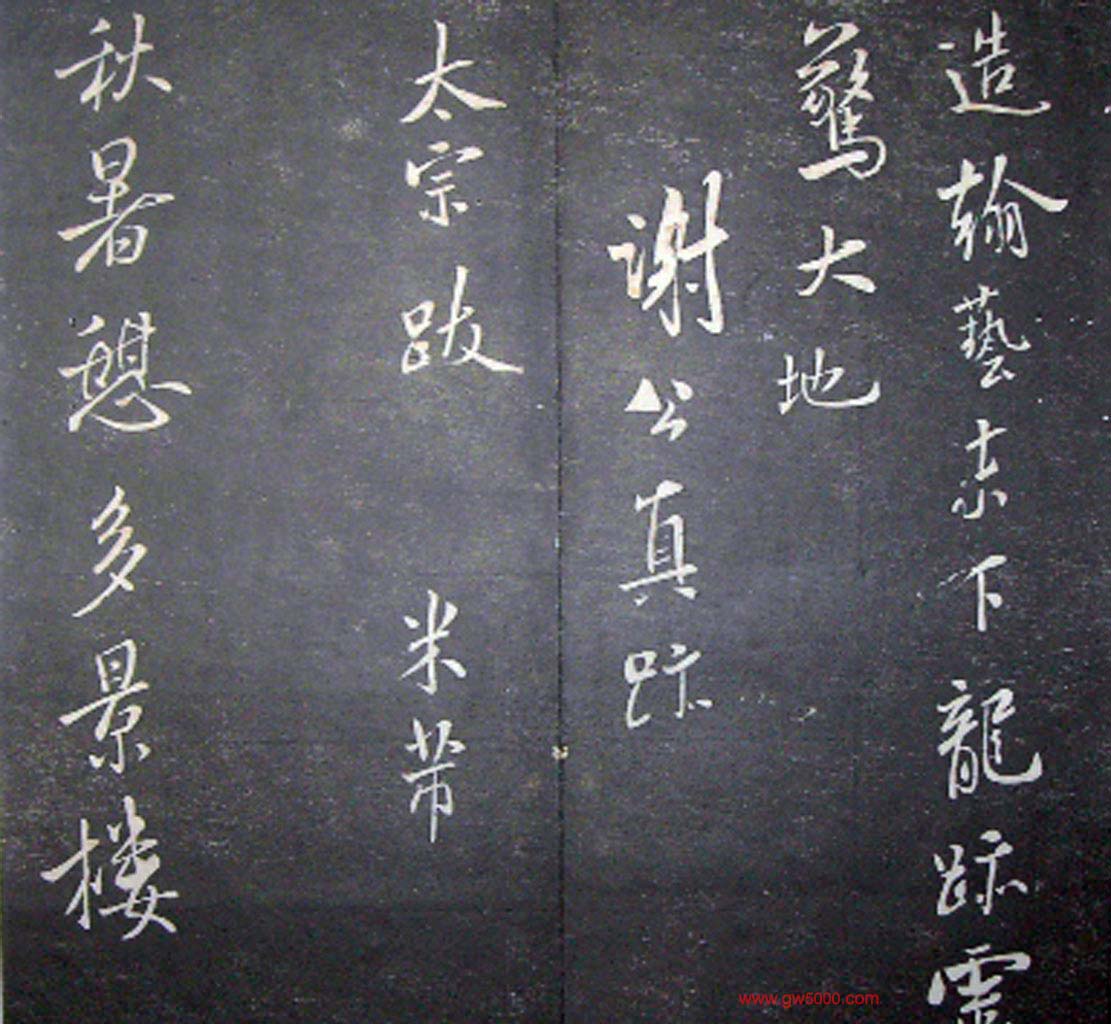 造翰藝素下龍跡靈
驚大地
謝公真跡
太宗跋 米芾
秋暑憩多景楼
www.gw5000.com